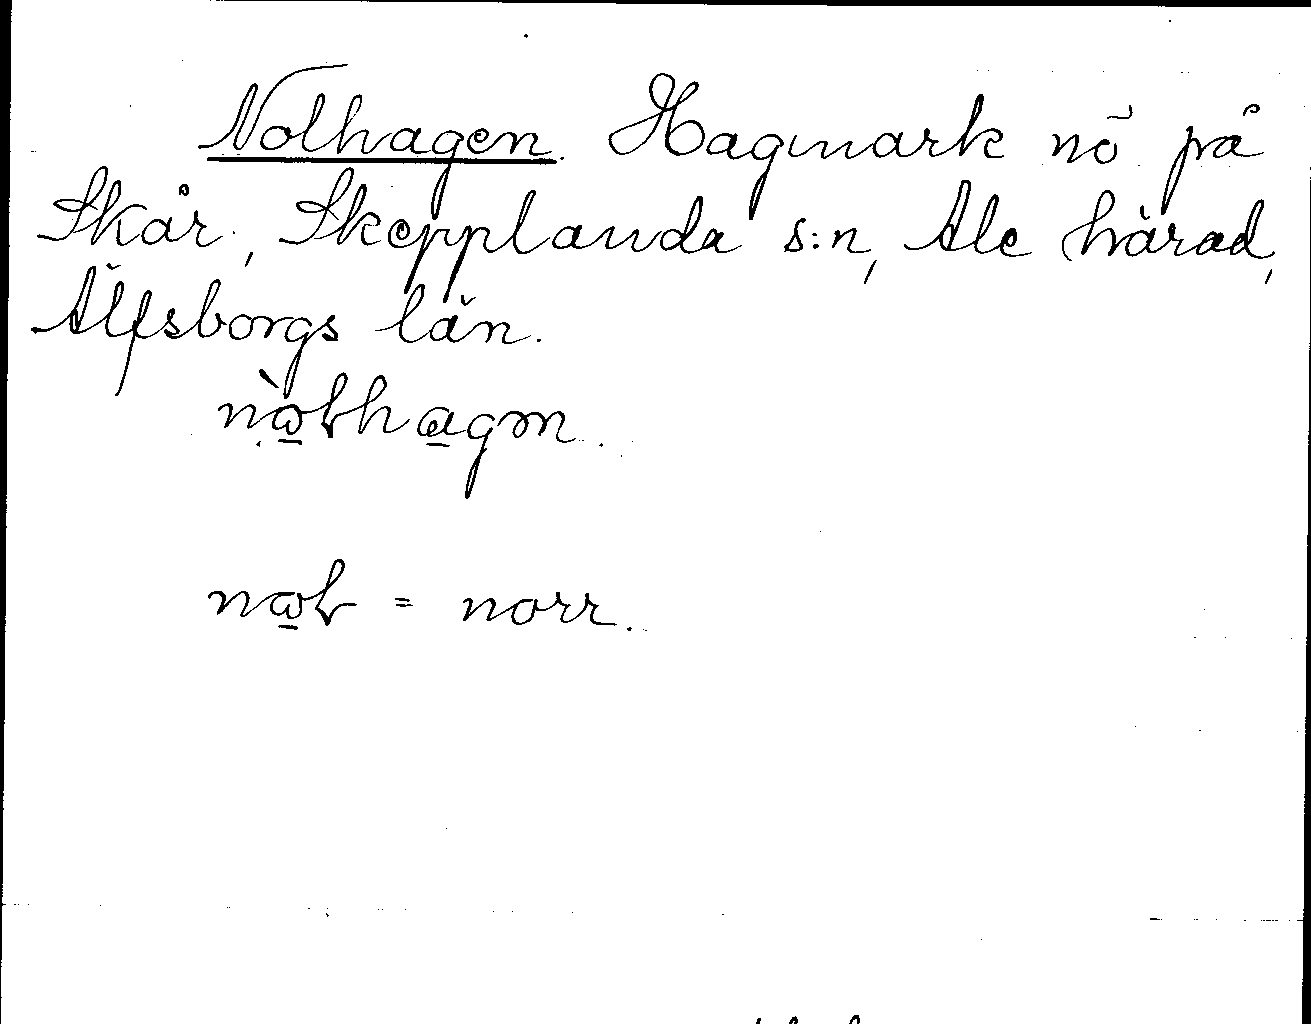 Nolhagen. Hagmark nö på
Skår, Skepplanda s:n, Ale härad,
Älfsborgs län.
norr.